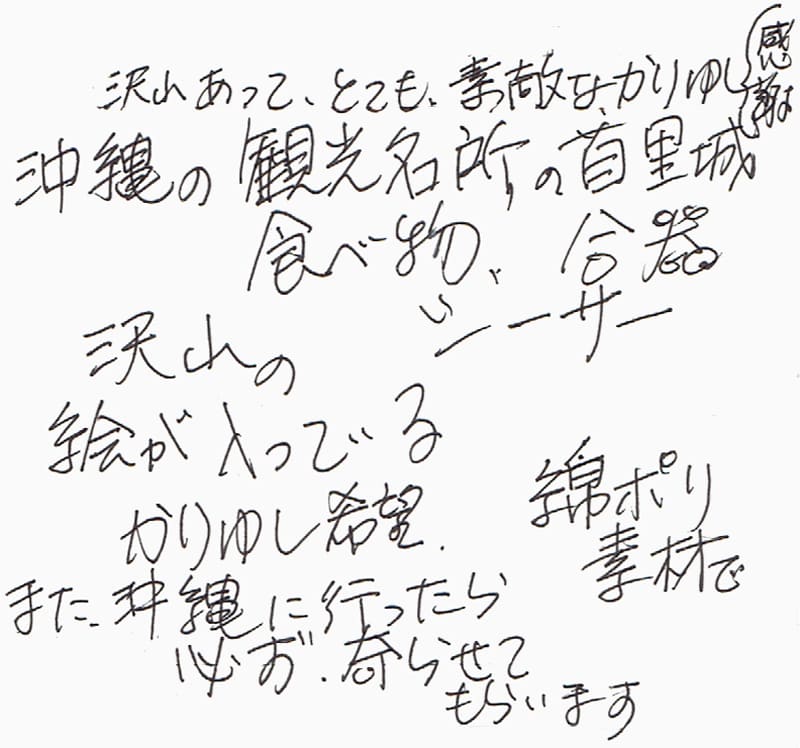 沢山あって、とても、素敵な、かりゆし
感謝
沖縄の観光名所の首里城
食べ物、
シーサー
沢山の
絵が入っている
かりゆし希望.
綿ポリ
素材で
また、沖縄に行ったら
必ず、寄らせて
もらいます